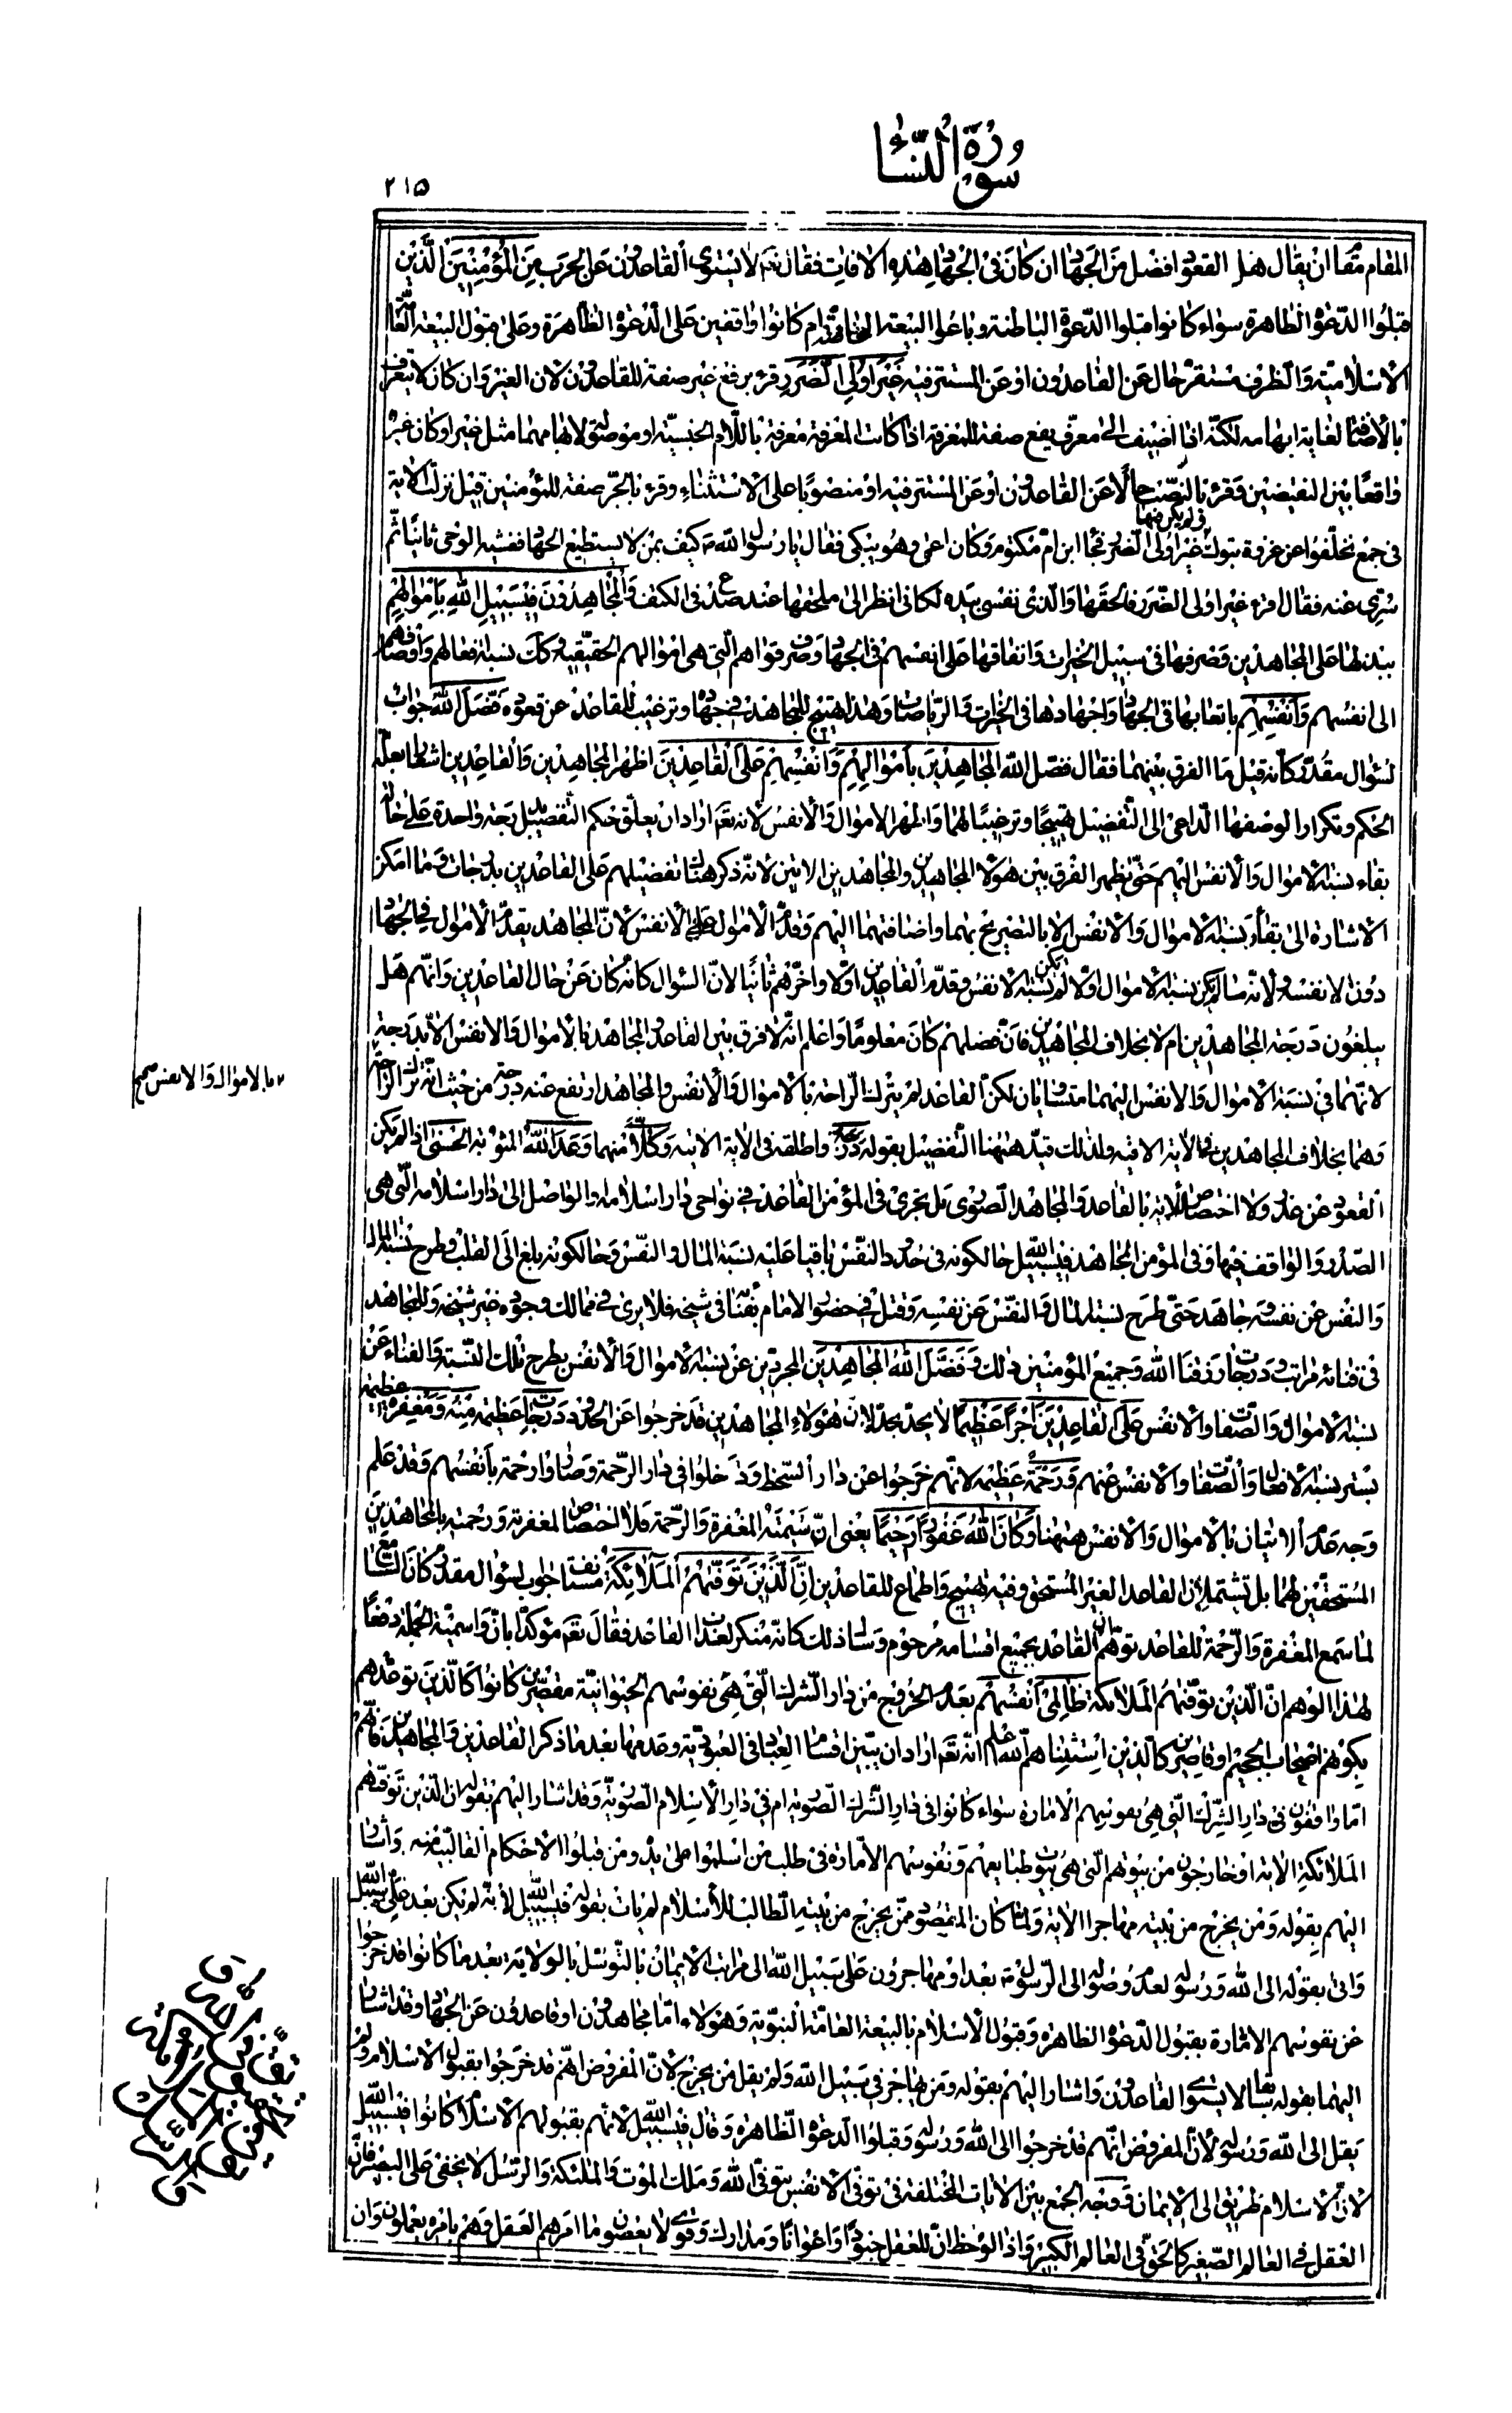 سورة النساء
٢١٥
المقام مقام ان يقال هل القعود افضل من الجهاد ان كان فى الجهاد هذه الافات فقال تعالى لا يستوى القاعدون عن الحرب من المؤمنين الذين
قبلوا الدعوة الظاهرة سواء كانوا قبلوا الدعوة الباطنة وباعوا البيعة الخاصة ام كانوا واقفين على الدعوة الظاهرة وعلى قبول البيعة العامة
الاسلامية والظرف مستقر حال عن القاعدون او عن المستتر فيه غير اولى الضرر قرء برفع غير صفة للقاعدون لان الغير وان كان لا يتعرف
بالاضافة لغاية ابهامه لكنه اذا اضيف الى معرف يقع صفة للمعرفة اذا كانت المعرفة معرفة باللام الجنسية او موصولة لابهامهما مثل غير او كان غير
واقعا بين النقيضين وقرء بالنصب حالا عن القاعدون او عن المستتر فيه او منصوبا على الاستثناء وقرء بالجر صفة للمؤمنين قيل نزلت الاية
فى جمع تخلفوا عن غزوة تبوك ولم يكن فيها غير اولى الضرر فجاء ابن ام مكتوم وكان اعمى وهو يبكى فقال يا رسول الله ص كيف بمن لا يستطيع الجهاد فغشيه الوحى ثانيا ثم
سرى عنه فقال اقرء غير اولى الضرر فالحقها والذى نفسى بيده لكانى انظر الى ملحقها عند صدع فى الكتف والمجاهدون فى سبيل الله باموالهم
ببذلها على المجاهدين وصرفها فى سبيل الخيرات وانفاقها على انفسهم فى الجهاد وصرف قواهم التى هى اموالهم الحقيقية وكك نسبة افعالهم واوصافهم
الى انفسهم وانفسهم باتعابها فى الجهاد واجهادها فى الخيرات والرياضات وهذا تهييج للمجاهد فى جهاده وترغيب للقاعد عن قعوده فضل الله جواب
لسؤال مقدر كانه قيل ما الفرق بينهما فقال فضل الله المجاهدين باموالهم وانفسهم على القاعدين اظهر المجاهدين والقاعدين اشعارا بعلة
الحكم وتكرارا لوصفهما الداعى الى التفضيل تهييجا وترغيبا لهما واظهر الاموال والانفس لانه تعالى اراد ان يعلق حكم التفضيل بدرجة واحدة على حال
بقاء نسبة الاموال والانفس اليهم حتى يظهر الفرق بين هؤلاء المجاهدين والمجاهدين الاتين لانه ذكر هناك تفضيلهم على القاعدين بدرجات وما امكن
الاشارة الى بقاء نسبة الاموال والانفس الا بالتصريح بهما واضافتهما اليهم وقدم الاموال على الانفس لان المجاهد يقدم الاموال فى الجهاد
دون الانفس ولانه ما لم يكن نسبة الاموال اولا لم يكن نسبة الانفس وقدم القاعدين اولا واخرهم ثانيا لان السؤال كانه كان عن حال القاعدين وانهم هل
يبلغون درجة المجاهدين ام لا بخلاف المجاهدين فان فضلهم كان معلوما واعلم انه لا فرق بين القاعد والمجاهد بالاموال والانفس الا بدرجة
لانهما فى نسبة الاموال والانفس اليهما متساويان لكن القاعد لم يترك الراحة بالاموال والانفس والمجاهد ارتفع عنه درجة من حيث انه ترك الراحة
وهما بخلاف المجاهدين فى الاية الاتية ولذلك قيد ههنا التفضيل بقوله درجة واطلقه فى الاية الاتية وكلا منهما وعد الله المثوبة الحسنى اذا لم يكن
القعود عن عذر ولا اختصاص للاية بالقاعد والمجاهد الصورى بل يجرى فى المؤمن القاعد فى نواحى دار اسلامه والواصل الى دار اسلامه التى هى
الصدر والواقف فيها وفى المؤمن المجاهد فى سبيل الله حالكونه فى حدود النفس باقيا عليه نسبة المال والنفس وحالكونه بلغ الى القلب وطرح نسبة المال
والنفس عن نفسه وجاهد حتى طرح نسبة المال والنفس عن نفسه وقتل فى حضور الامام بفنائه فى شيخه فلا يرى فى ممالك وجوده غير شيخه وللمجاهد
فى فنائه مراتب ودرجات رزقنا الله وجميع المؤمنين ذلك وفضل الله المجاهدين المجردين عن نسبة الاموال والانفس بطرح تلك النسبة والفناء عن
نسبة الاموال والصفات والانفس على القاعدين اجرا عظيما لا يحد بحد لان هؤلاء المجاهدين قد خرجوا عن الحدود درجات عظيمة منه ومغفرة عظيمة
بستر نسبة الافعال والصفات والانفس عنهم ورحمة عظيمة لانهم خرجوا عن دار السخط ودخلوا فى دار الرحمة وصاروا رحمة بانفسهم وقد علم
وجه عدم الاتيان بالاموال والانفس ههنا وكان الله غفورا رحيما يعنى ان شيمته المغفرة والرحمة فلا اختصاص لمغفرته ورحمته بالمجاهدين
المستحقين لهما بل تشتملان القاعد الغير المستحق وفيه تهييج واطماع للقاعدين ان الذين توفيهم الملائكة مستانف جواب لسؤال مقدر كان السامع
لما سمع المغفرة والرحمة للقاعد توهم ان القاعد بجميع اقسامه مرحوم وسأل ذلك كانه منكر لعذاب القاعد فقال تعالى مؤكدا بان واسمية الجملة دفعا
لهذا الوهم ان الذين توفيهم الملائكة ظالمى انفسهم بعدم الخروج من دار الشرك التى هى نفوسهم الحيوانية مقصرين كانوا كالذين توعدهم
بكونهم اصحاب الجحيم او قاصرين كالذين استثناهم الله اعلم انه تعالى اراد ان يبين اقسام العباد فى العبودية وعدمها بعد ما ذكر القاعدين والمجاهدين فانهم
اما واقفون فى دار الشرك التى هى نفوسهم الامارة سواء كانوا فى دار الشرك الصورية ام فى دار الاسلام الصورية وقد اشار اليهم بقوله ان الذين توفيهم
الملائكة الاية او خارجون من بيوتهم التى هى بيوت طبايعهم ونفوسهم الامارة فى طلب من اسلموا على يده ومن قبلوا الاحكام القالبية منه واشار
اليهم بقوله ومن يخرج من بيته مهاجرا الاية ولما كان المقصود ممن يخرج من بيته الطالب للاسلام لم يات بقوله فى سبيل الله لانه لم يكن بعد على سبيل الله
واتى بقوله الى الله ورسوله لعدم وصوله الى الرسول ص بعد او مهاجرون على سبيل الله الى مراتب الايمان بالتوسل بالولاية بعد ما كانوا قد خرجوا
عن نفوسهم الامارة بقبول الدعوة الظاهرة وقبول الاسلام بالبيعة العامة النبوية وهؤلاء اما مجاهدون او قاعدون عن الجهاد وقد اشار
اليهما بقوله تعالى لا يستوى القاعدون واشار اليهم بقوله ومن يهاجر فى سبيل الله ولم يقل من يخرج لان المفروض انهم قد خرجوا بقبول الاسلام ولم
يقل الى الله ورسوله لان المفروض انهم قد خرجوا الى الله ورسوله وقبلوا الدعوة الظاهرة وقال فى سبيل الله لانهم بقبولهم الاسلام كانوا فى سبيل الله
لان الاسلام طريق الى الايمان ووجه الجمع بين الايات المختلفة فى توفى الانفس بتوفى الله وملك الموت والملئكة والرسل لا يخفى على البصير فان
العقل فى العالم الصغير كالحق فى العالم الكبير واذا لوحظ ان للعقل جنودا واعوانا ومدارك وقوى لا يعصون ما امرهم العقل وهم بامره يعملون وان
بالاموال والانفس صح